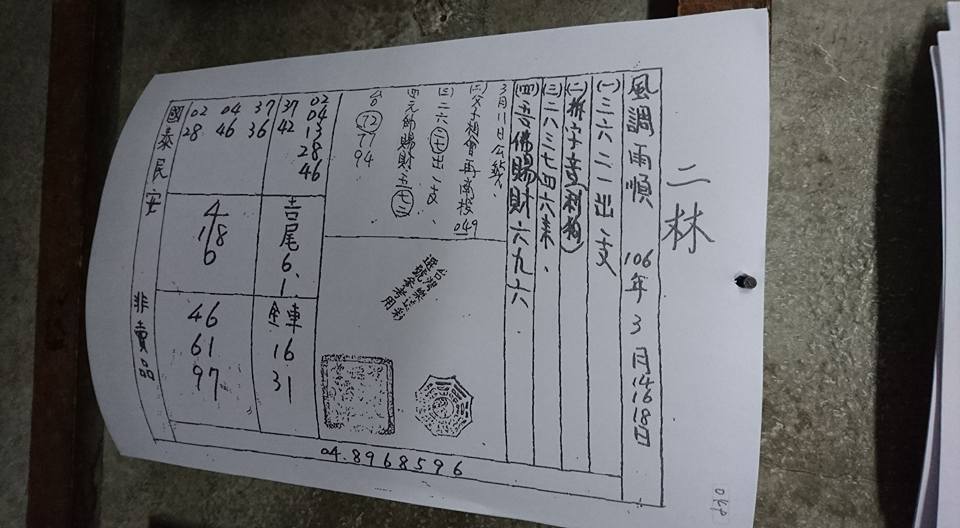 二林
風調雨順 106年3月14 16 18日
(一)三六二一出一支
(二)拆字意利狗)
(三)二八三七四六來、
(四)吾佛賜財六九六
3月11日公錄、
(二)父子相會再南梭049
(三)二六三七出一支、
(四)元帥賜財五七三
台72 77 94
台灣樂透彩
選號參考用
37 02
42 04
13
28
46
吉尾6.1
金車
16
31
02 04 37
28 46 36
4
1 8
6
46
61
97
國泰民安 非賣品
04.8968596